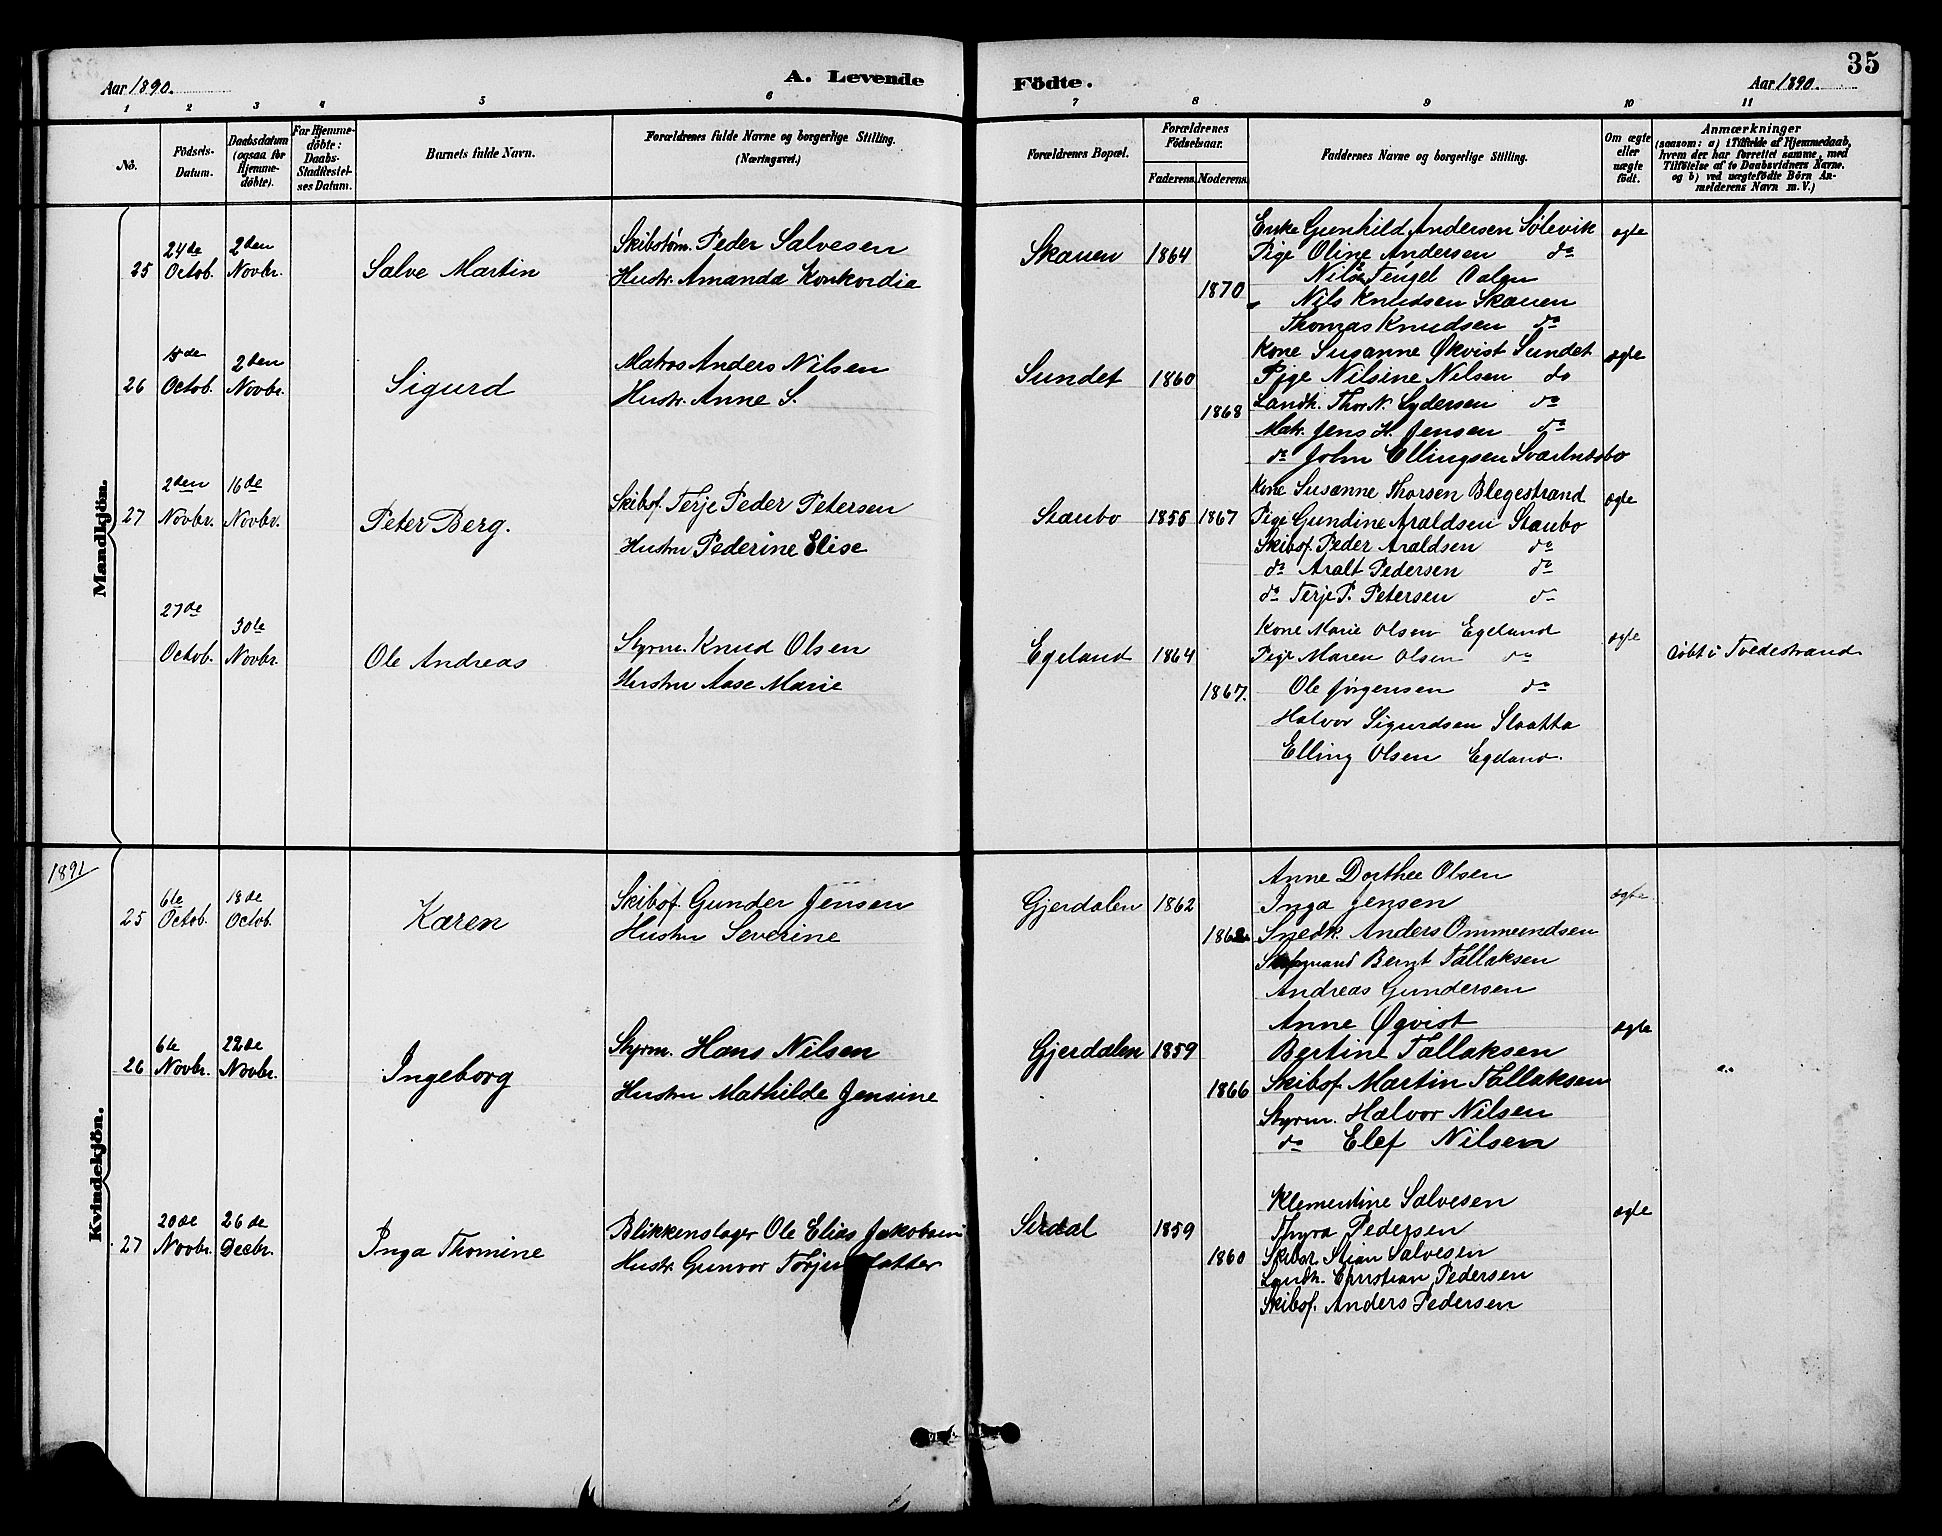 35
Aar 1890.
A. Levende
Födte.
Aar 1890.
1 2 3 4 5 6 7 8 9 10 11
No.
Födsels-Datum.
Daabsdatum (ogsaa for Hjemme-döbte).
For Hjemme-döbte: Daabs-Stadfæstel-ses Datum.
Barnets fulde Navn.
Forældrenes fulde Navne og borgerlige Stilling. (Næringsvei.)
Forældrenes Bopæl.
Forældrenes Födselsaar.
Faderens. Moderens.
Faddernes Navne og borgerlige Stilling.
Om ægte eller uægte födt.
Anmærkninger
(saasom: a) i Tilfælde af Hjemmedaab, hvem der har forrettet samme, med Tilföielse af to Daabsvidners Navne. og b) ved uægtefödte Börn An-melderens Navn m. V.)
Mandkjön.
25 24de Octob. 2den Novbr. Salve Martin
Skibstøm. Peder Salvesen
Hustr. Amanda Konkordia
Skauen 1864 1870
Enke Gunhild Andersen Sølevik
Pige Oline Andersen do
Nils Tengel
Nils Knudsen Skauen
Thomas Knudsen do
ægte
26 Octob. 2den Novbr. Sigurd
Matros Anders Nilsen
Hustr. Anne S.
Sundet 1860 1868
Kone Susanne Økvist Sundet
Pige Nilsine Nilsen do
Landh. Thor N. Lydersen do
Matr. Jens H. Jensen do
do John Ellingsen
ægte
27 2den Novbr. 16de Novbr. Peter Berg.
Skibsf. Terje Peder Petersen
Hustru Pederine Elise
Staubo 1855 1867
Kone Susanne Thorsen Blegestrand
Pige Gundine Araldsen Staubo
Skibsf. Peder Araldsen do
do Aralt Pedersen do
do Terje P. Petersen do
ægte
27de Octob. 30te Novbr. Ole Andreas
Styrm. Knud Olsen
Hustru Aase Marie
Egeland 1864 1867.
Kone Marie Olsen Egeland
Pige Maren Olsen do
Ole Jørgensen do
Halvor Sigurdsen Slaatta
Elling Olsen Egeland.
ægte
døbt i Tvedestrand
1891
Kvindekjön.
25 6te Octob. 18de Octob. Karen
Skibsf. Gunder Jensen
Hustru Severine
Gjerdalen 1862 1862
Anne Dorthee Olsen
Inga Jensen
Snedk. Anders Ommundsen
Bernt Tallaksen
Andreas Gundersen
ægte
26 6te Novbr. 22de Novbr. Ingeborg
Styrm. Hans Nilsen
Hustru Mathilde Jensine
Gjerdalen 1859 1866
Anne Øqvist
Bertine Tallaksen
Skibsf. Martin Tallaksen
Styrm. Halvor Nilsen
do Elef Nilsen
ægte
27 20de Novbr. 26de Decbr. Inga Thomine
Blikkenslager Ole Elias Jakobsen
Hustr. Gunvor
Sirdal 1859 1860
Klementine Salvesen
Thyra Pedersen
Stian Salvesen
Landh. Christian Pedersen
Skibsf. Anders Pedersen
ægte